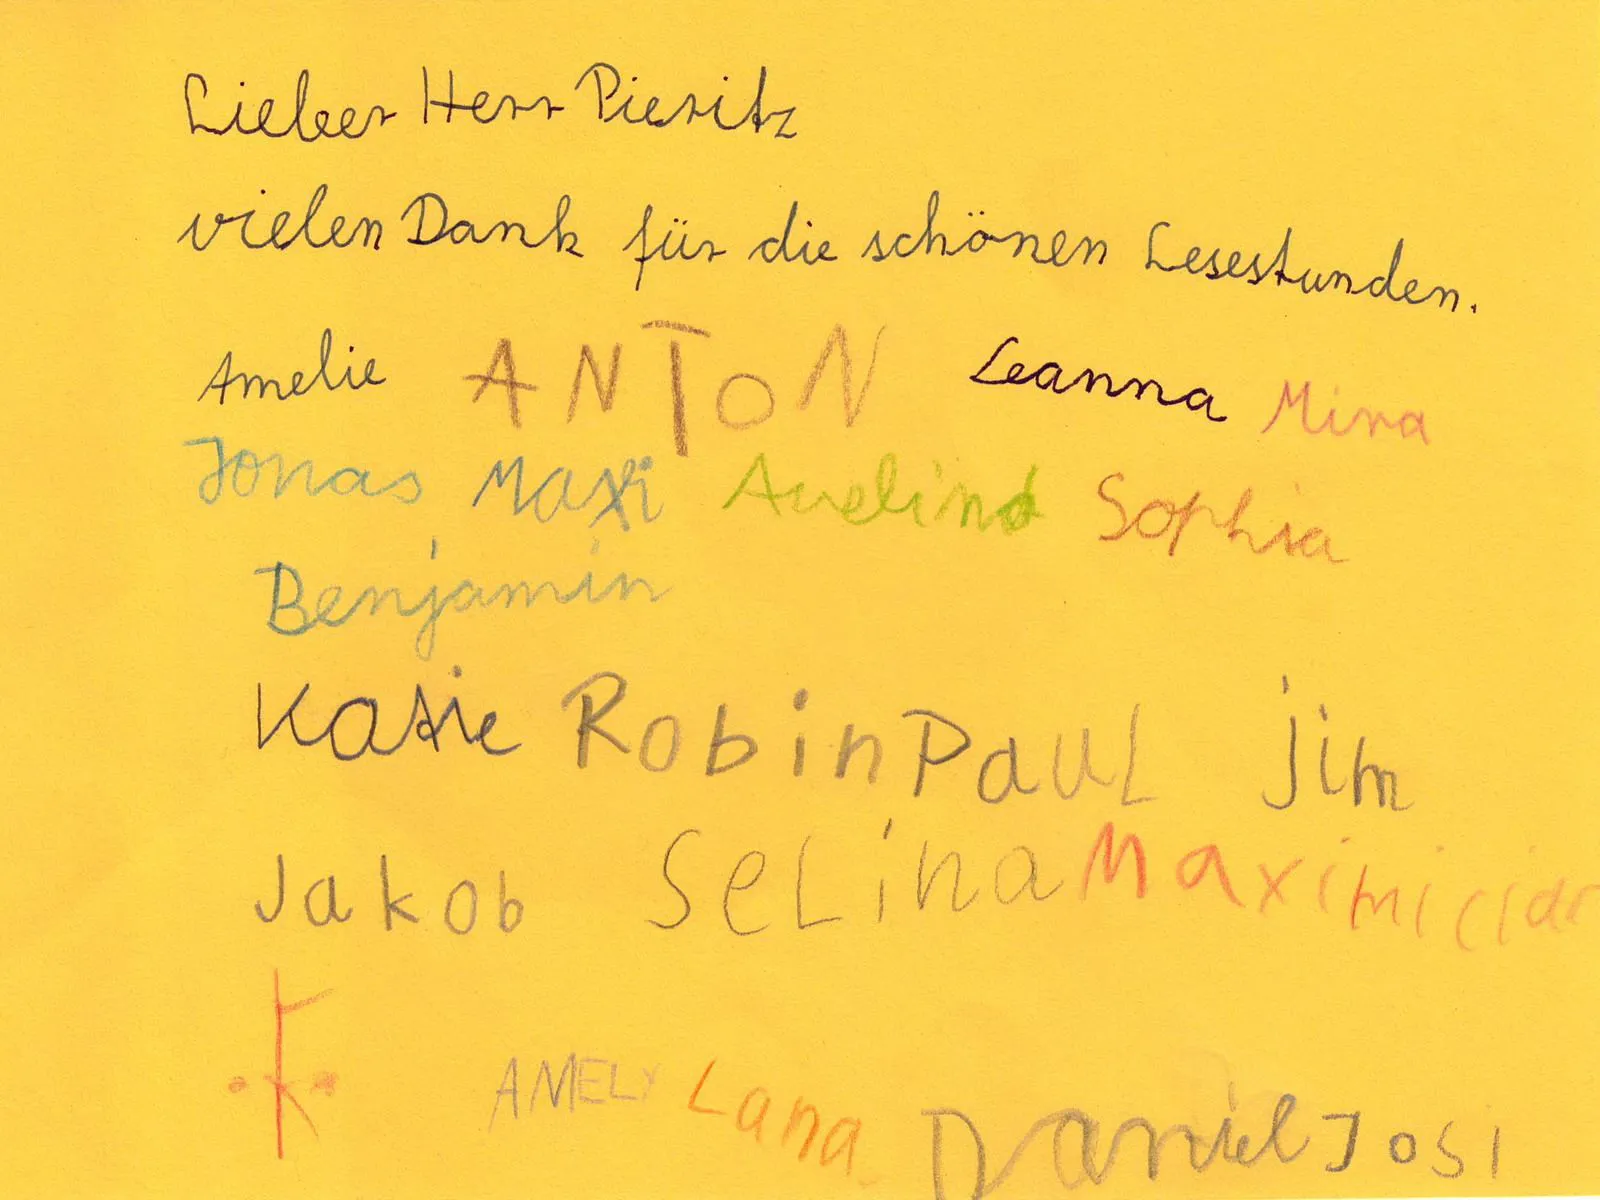 Lieber Herr Pieritz
vielen Dank für die schönen Lesestunden.
Amelie ANTON Leanna Mira
Jonas Maxi Avelina Sophia
Benjamin
Katie Robin PaUL jim
Jakob SeLina Maximilian
AMELY Lana Daniel JOSI